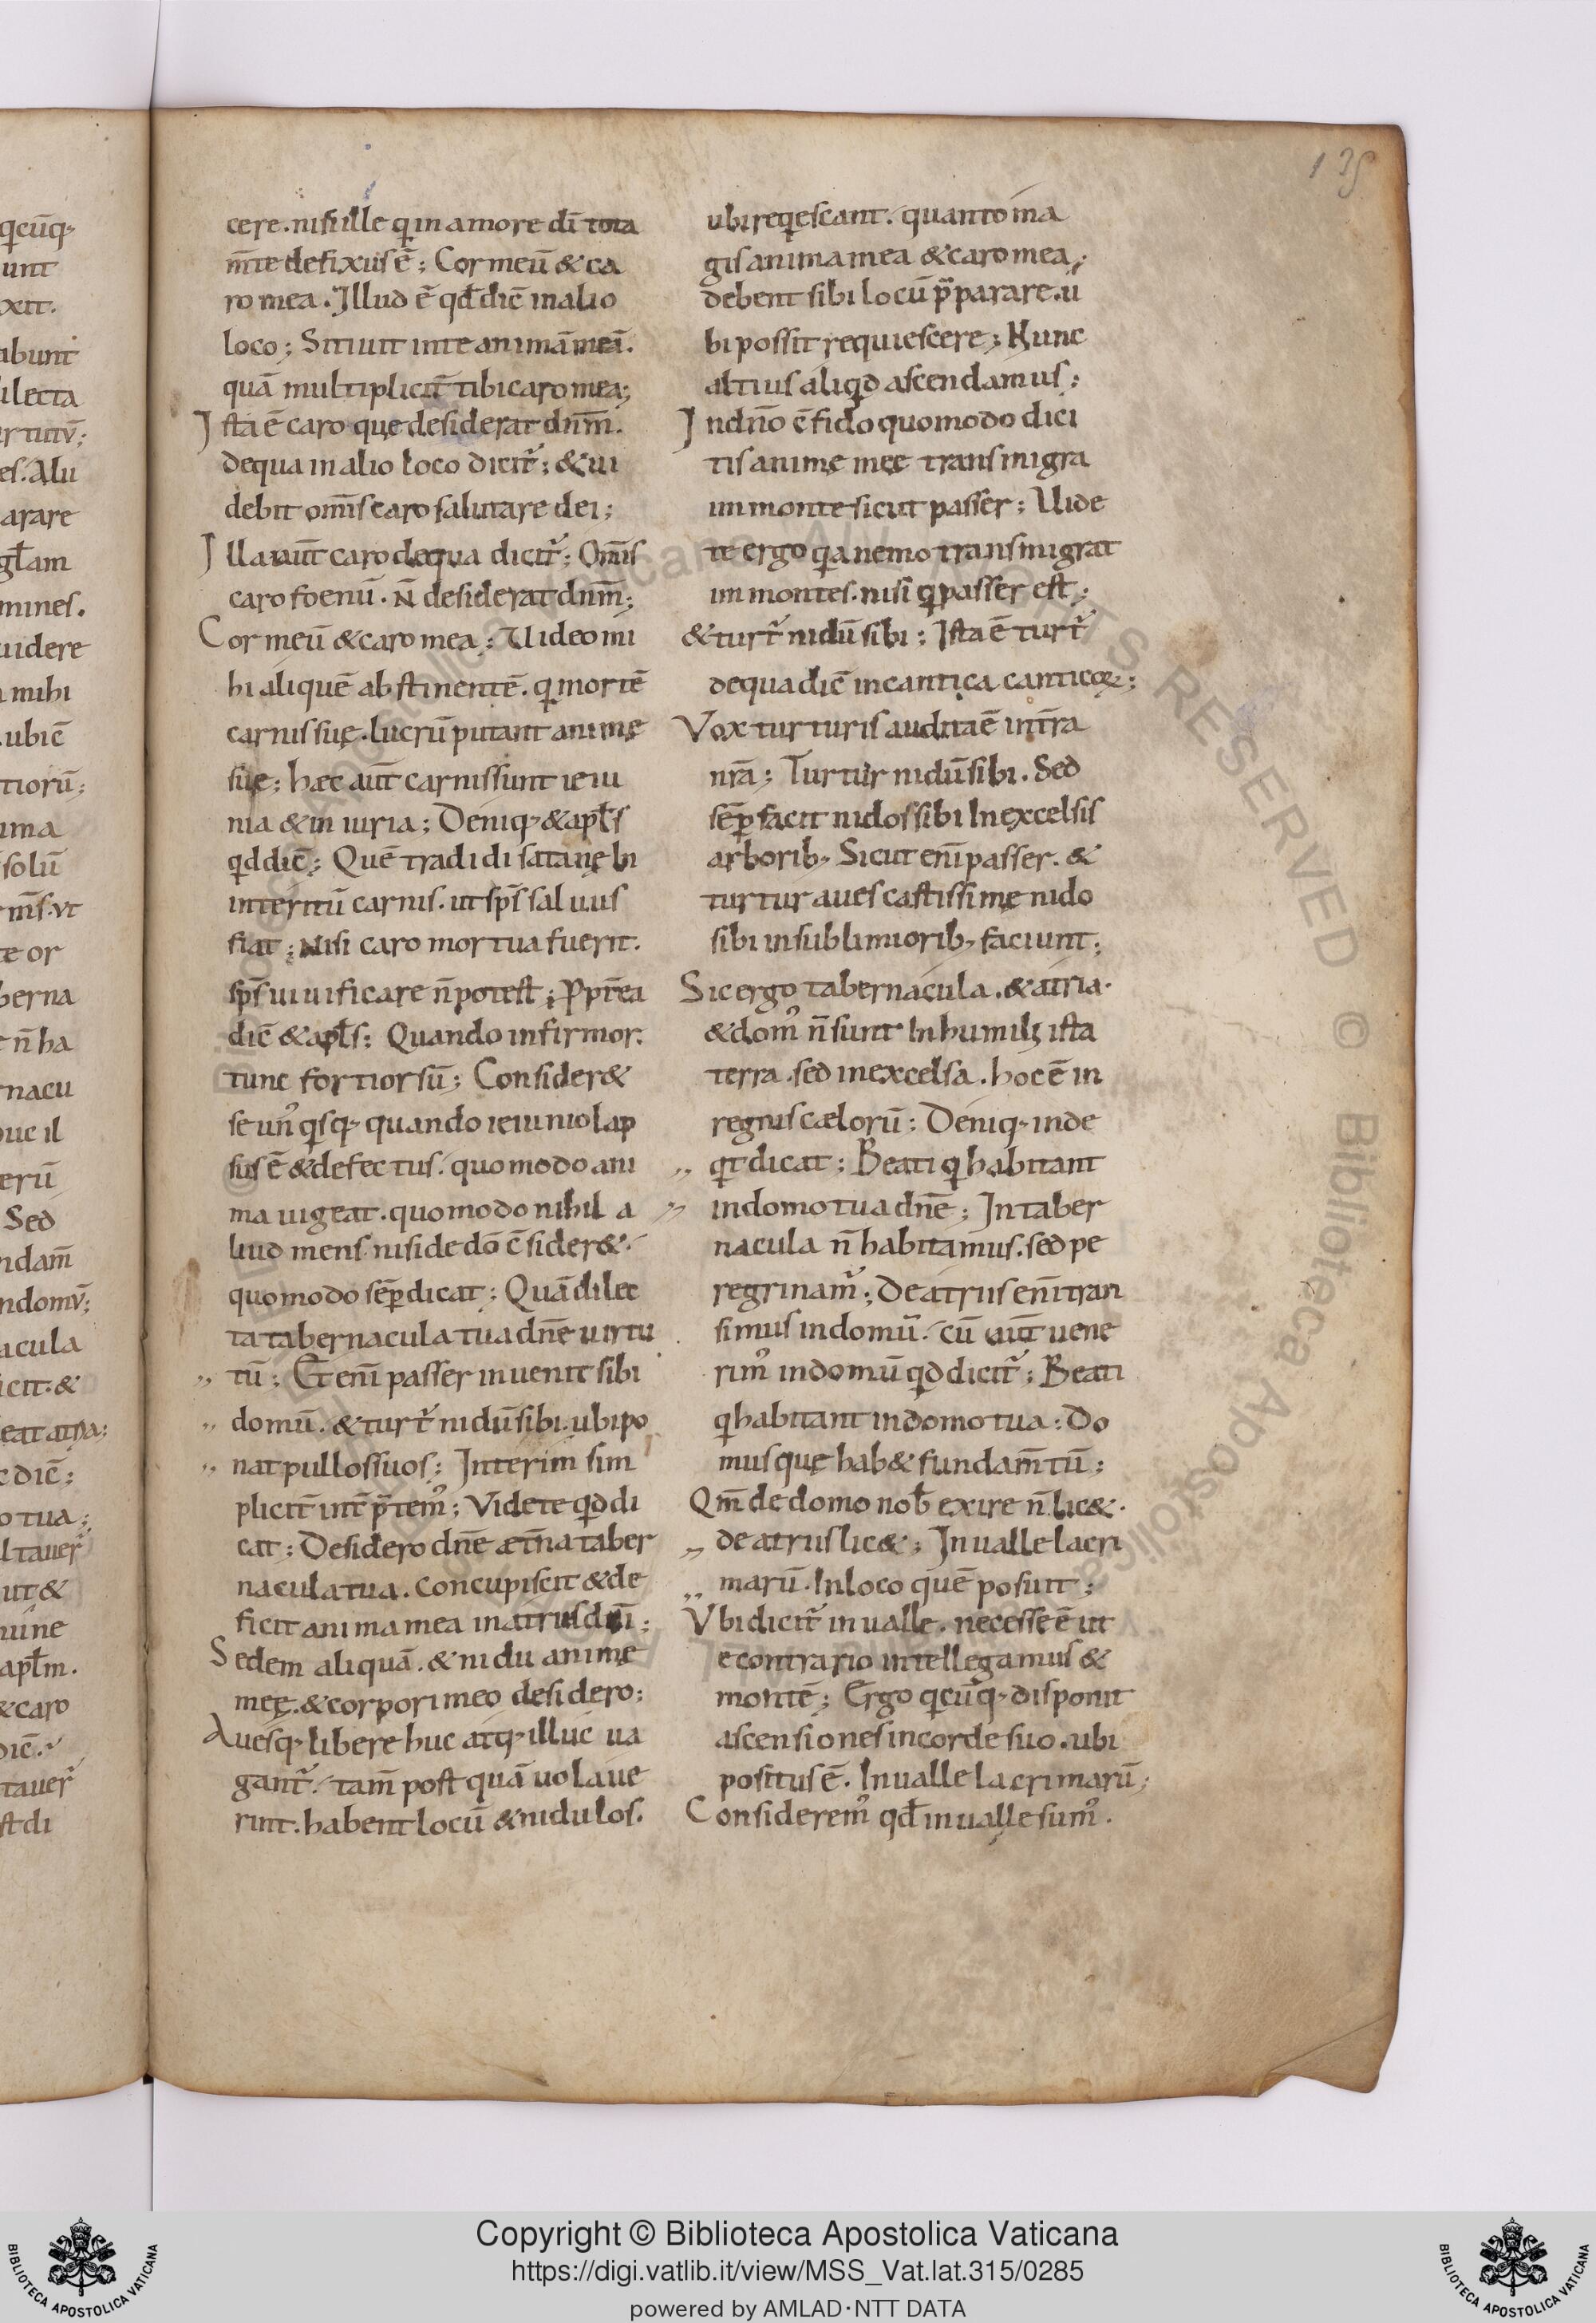 135
cere. nisi ille qi in amore dī tota
m̄te defixus ē; Cor meū & ca
ro mea. Illud ē qđ dic̄ in alio
loco; Sitiuit in te animā meā.
quā multiplicit̄ tibi caro mea;
Ista ē caro quę desiderat dnm̄.
de qua in alio loco dicit᷑; & ui
debit om̄s caro salutare dei;
Illa aut̄ caro de qua dicit᷑; Om̄s
caro foenū. N̄ desiderat dnm̄;
Cor meū & caro mea; Uideo mi
hi aliquē abstinentē. qi mortē
carnis suę. lucrū putant animę
suę; hęc aut̄ carnis sunt ieiu
nia & iniuria; Deniq; & apl̄s
qd dic̄; Quē tradidi satanę In
interitū carnis. ut sp̄s saluus
fiat; Nisi caro mortua fuerit.
sp̄s uiuificare n̄ potest; Ppt̄ea
dic̄ & apl̄s; Quando infirmor.
tunc fortior sū; Consider&
se un᷒ qisq; quando ieiunio lap
sus ē & defectus. quomodo ani
ma uigeat. quomodo nihil a
liud mens nisi de dō c̄sider&.
quomodo semꝑ dicat; Quā dilec
ta tabernacula tua dnē uirtu
tū; Et eni passer inuenit sibi
domū. & turt᷑ nidū sibi. ubi po
nat pullos suos; Interim sim
plicit̄ int̄p̄tem᷒; Videte qd di
cat; Desidero dnē æt̄na taber
nacula tua. concupiscit & de
ficit anima mea in atriis dnī;
Sedem aliquā. & nidū animę
meę. & corpori meo desidero;
Auesq; libere huc atq; illuc ua
gant᷑. tam̄ post quā uolaue
rint. habent locū & nidulos.
ubi reqiescant. quanto ma
gis anima mea & caro mea;
debent sibi locū p̄parare. u
bi possit requiescere; Nunc
altius aliqd ascendamus;
In dnō c̄fido quomodo dici
tis animę meę transmigra
in monte sicut passer; Uide
te ergo qia nemo transmigrat
in montes. nisi qi passer est;
& turt᷑ nidū sibi; Ista ē turt᷑
de qua dic̄ in cantica canticoꝝ;
Vox turturis audita ē in t̄ra
nr̄a; Turtur nidū sibi. Sed
semꝑ facit nidos sibi In excelsis
arborib; Sicut eni passer. &
turtur aues castissimę nido
sibi in sublimiorib; faciunt;
Sic ergo tabernacula. & atria.
& dom᷒ n̄ sunt In humili ista
terra. sed in excelsa. hoc ē in
regnis cælorū; Deniq; inde
qt dicat; Beati qi habitant
in domo tua dnē; In taber
nacula n̄ habitam̄us. sed pe
regrinam᷑; De atriis eni tran
simus in domū. cū aut̄ uene
rim᷒ in domū qd dicit᷑; Beati
qi habitant in domo tua; Do
mus quę hab& fundam̄tū;
Qm̄ de domo nob̄ exire n̄ lic&.
de atriis lic&; In ualle lacri
marū. In loco quē posuit;
Vbi dicit᷑ in ualle. necesse ē ut
e contrario intellegamus &
montē; Ergo qicūq; disponit
ascensiones in corde suo. ubi
positus ē. In ualle lacrimarū;
Considerem᷒ qđ in ualle sum᷒.
Copyright © Biblioteca Apostolica Vaticana
https://digi.vatlib.it/view/MSS_Vat.lat.315/0285
powered by AMLAD·NTT DATA